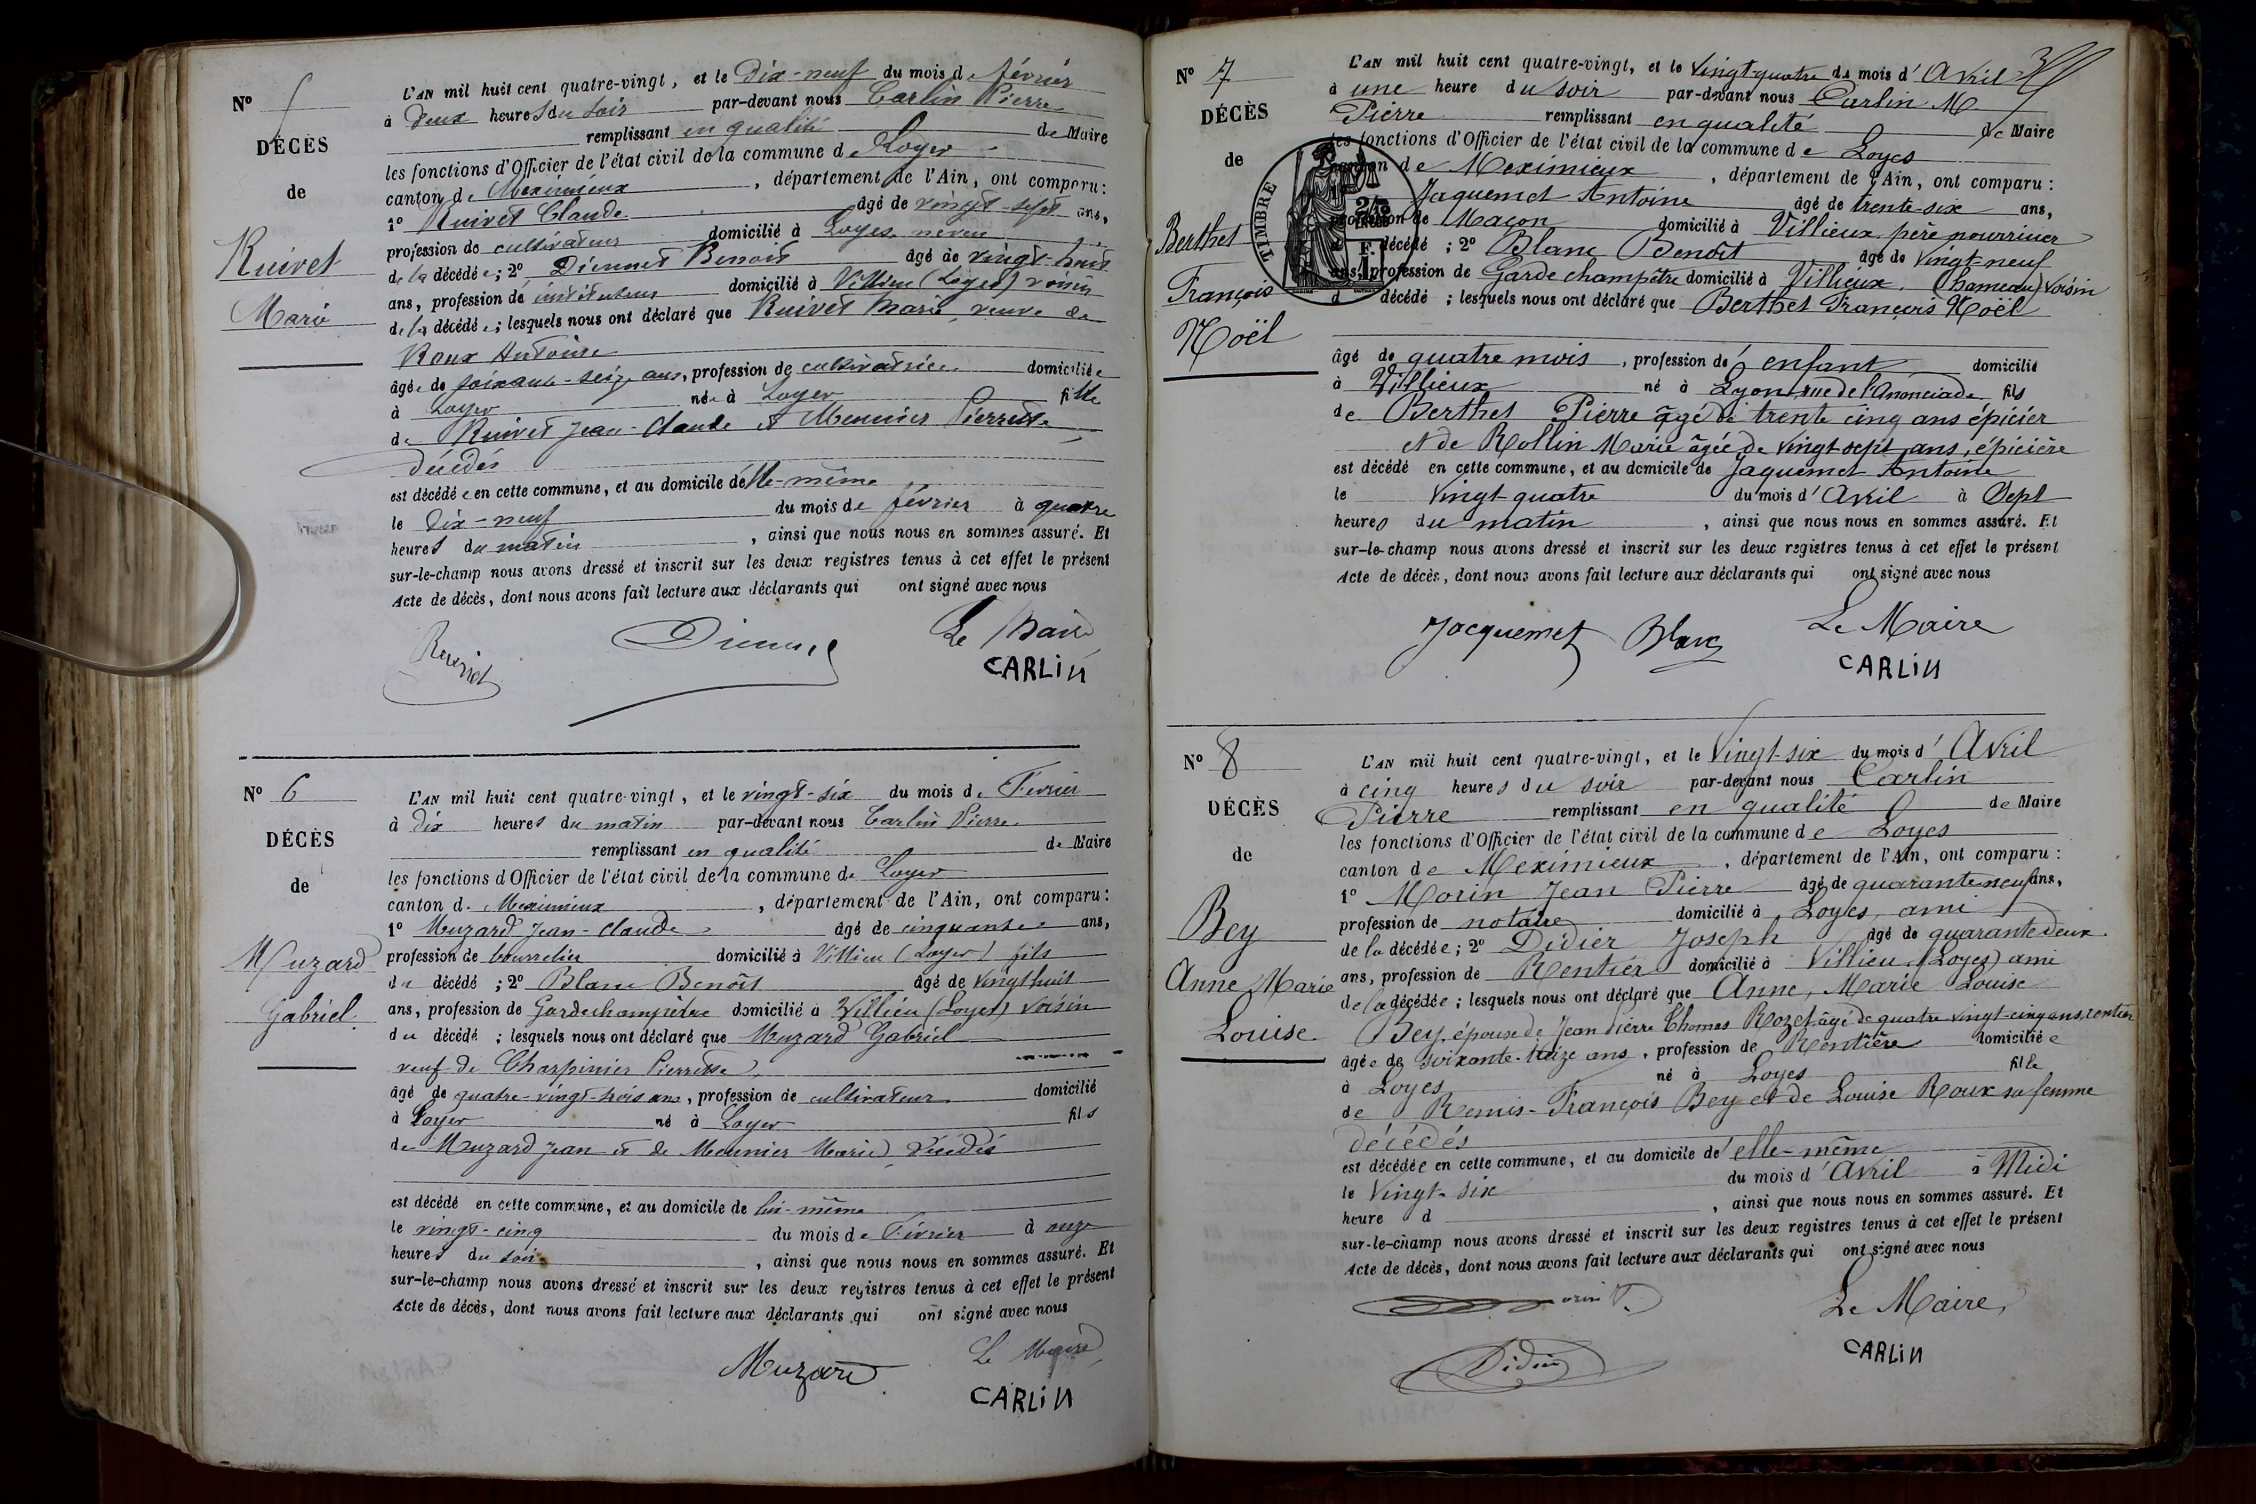 N° 5
DÉCÈS
de
Ruivet
Marie
L'AN mil huit cent quatre-vingt, et le Dix-neuf du mois de février
à Deux heures du soir par-devant nous Carlin Pierre
remplissant en qualité de Maire
les fonctions d'Officier de l'état civil de la commune de Loyes
canton de Meximieux, département de l'Ain, ont comparu :
1° Ruivet Claude âgé de vingt-sept ans,
profession de cultivateur domicilié à Loyes, neveu
de la décédée ; 2° Diennet Benoit âgé de vingt-huit
ans, profession de instituteur domicilié à Villieu (Loyes) voisin
de la décédée ; lesquels nous ont déclaré que Ruivet Marie, veuve de
Roux Antoine
âgée de soixante-seize ans, profession de cultivatrice domiciliée
à Loyes née à Loyes fille
de Ruivet Jean-Claude et Meunier Pierrette
décédés
est décédée en cette commune, et au domicile d'elle-même
le Dix-neuf du mois de février à quatre
heures du matin, ainsi que nous nous en sommes assuré. Et
sur-le-champ nous avons dressé et inscrit sur les deux registres tenus à cet effet le présent
Acte de décès, dont nous avons fait lecture aux déclarants qui ont signé avec nous
Le Maire
CARLIN
N° 6
DÉCÈS
de
Muzard
Gabriel
L'AN mil huit cent quatre-vingt, et le vingt-six du mois de Février
à Dix heures du matin par-devant nous Carlin Pierre
remplissant en qualité de Maire
les fonctions d'Officier de l'état civil de la commune de Loyes
canton de Meximieux, département de l'Ain, ont comparu :
1° Muzard Jean-Claude âgé de cinquante ans,
profession de bourrelier domicilié à Villieu (Loyes) fils
du décédé ; 2° Blanc Benoît âgé de vingt huit
ans, profession de Gardechampêtre domicilié à Villieu (Loyes) voisin
du décédé ; lesquels nous ont déclaré que Muzard Gabriel
veuf de Charpinier Pierrette
âgé de quatre-vingt-trois ans, profession de cultivateur domicilié
à Loyes né à Loyes fils
de Muzard Jean et de Meunier Marie, décédés
est décédé en cette commune, et au domicile de lui-même
le vingt-cinq du mois de Février à onze
heures du soir, ainsi que nous nous en sommes assuré. Et
sur-le-champ nous avons dressé et inscrit sur les deux registres tenus à cet effet le présent
Acte de décès, dont nous avons fait lecture aux déclarants qui ont signé avec nous
Muzard
Le Maire
CARLIN
N° 7
DÉCÈS
de
Berthet
François
Noël
TIMBRE
L'AN mil huit cent quatre-vingt, et le vingt-quatre du mois d'Avril
à une heure du soir par-devant nous Carlin M
Pierre remplissant en qualité de Maire
les fonctions d'Officier de l'état civil de la commune de Loyes
canton de Meximieux, département de l'Ain, ont comparu :
Jaquemet Antoine âgé de trente-six ans,
profession de Maçon domicilié à Villieux père nourricier
décédé ; 2° Blanc Benoît âgé de vingt-neuf
ans, profession de Garde champêtre domicilié à Villieux (hameau) voisin
d décédé ; lesquels nous ont déclaré que Berthet François Noël
âgé de quatre mois, profession de enfant domicilié
à Villieux né à Lyon, rue de l'Anonciade fils
de Berthet Pierre âgé de trente cinq ans épicier
et de Rollin Marie âgée de vingt-sept ans, épicière
est décédé en cette commune, et au domicile de Jaquemet Antoine
le vingt-quatre du mois d'Avril à Sept
heures du matin, ainsi que nous nous en sommes assuré. Et
sur-le-champ nous avons dressé et inscrit sur les deux registres tenus à cet effet le présent
Acte de décès, dont nous avons fait lecture aux déclarants qui ont signé avec nous
Jacquemet Blanc Le Maire
CARLIN
N° 8
DÉCÈS
de
Bey
Anne Marie
Louise
L'AN mil huit cent quatre-vingt, et le Vingt-six du mois d'Avril
à cinq heures du soir par-devant nous Carlin
Pierre remplissant en qualité de Maire
les fonctions d'Officier de l'état civil de la commune de Loyes
canton de Meximieux, département de l'Ain, ont comparu :
1° Morin Jean Pierre âgé de quarante neuf ans,
profession de notaire domicilié à Loyes, ami
de la décédée ; 2° Didier Joseph âgé de quarante deux
ans, profession de Rentier domicilié à Villieu (Loyes) ami
de la décédée ; lesquels nous ont déclaré que Anne, Marie Louise
Bey, épouse de Jean Pierre Thomas Rozet âgé de quatre vingt-cinq ans, rentier
âgée de soixante-treize ans, profession de Rentière domiciliée
à Loyes né à Loyes fille
de Remis-François Bey et de Louise Roux sa femme
décédés
est décédée en cette commune, et au domicile d'elle-même
le vingt-six du mois d'Avril à Midi
heure d , ainsi que nous nous en sommes assuré. Et
sur-le-champ nous avons dressé et inscrit sur les deux registres tenus à cet effet le présent
Acte de décès, dont nous avons fait lecture aux déclarants qui ont signé avec nous
Le Maire,
Didier
CARLIN